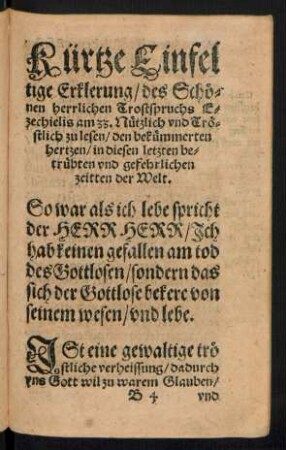 Kürtze Einfel
tige Erklerung/des Schö-
nen herrlichen Trostspruchs E-
zechielis am 33. Nützlich vnd Trö-
stlich zu lesen/den bekümmerten
hertzen/in diesen letzten be-
trübten vnd gefehrlichen
zeitten der Welt.
So war als ich lebe spricht
der HERR HERR/Ich
hab keinen gefallen am tod
des Gottlosen/sondern das
sich der Gottlose bekere von
seinem wesen/vnd lebe.
ISt eine gewaltige trö
stliche verheissung/dadurch
vns Gott wil zu warem Glauben/
B 4 vnd